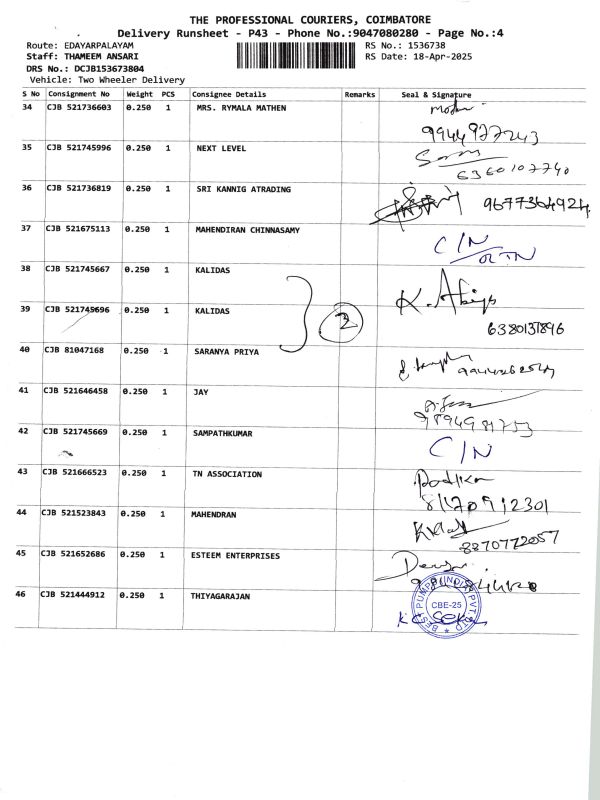 THE PROFESSIONAL COURIERS, COIMBATORE
Delivery Runsheet - P43 - Phone No.:9047080280 - Page No.:4
Route: EDAYARPALAYAM
RS No.: 1536738
Staff: THAMEEM ANSARI
RS Date: 18-Apr-2025
DRS No.: DCJB153673804
Vehicle: Two Wheeler Delivery
S No Consignment No Weight PCS Consignee Details Remarks Seal & Signature
34 CJB 521736603 0.250 1 MRS. RYMALA MATHEN
9944977243
35 CJB 521745996 0.250 1 NEXT LEVEL
6360107740
36 CJB 521736819 0.250 1 SRI KANNIG ATRADING 9677364924
37 CJB 521675113 0.250 1 MAHENDIRAN CHINNASAMY C/N
38 CJB 521745667 0.250 1 KALIDAS
39 CJB 521745696 0.250 1 KALIDAS 2
6380131896
40 CJB 81047168 0.250 1 SARANYA PRIYA
41 CJB 521646458 0.250 1 JAY
42 CJB 521745669 0.250 1 SAMPATHKUMAR C/N
43 CJB 521666523 0.250 1 TN ASSOCIATION
44 CJB 521523843 0.250 1 MAHENDRAN
8270772057
45 CJB 521652686 0.250 1 ESTEEM ENTERPRISES
46 CJB 521444912 0.250 1 THIYAGARAJAN
BEST PUMPS (INDIA) PVT LTD
CBE-25